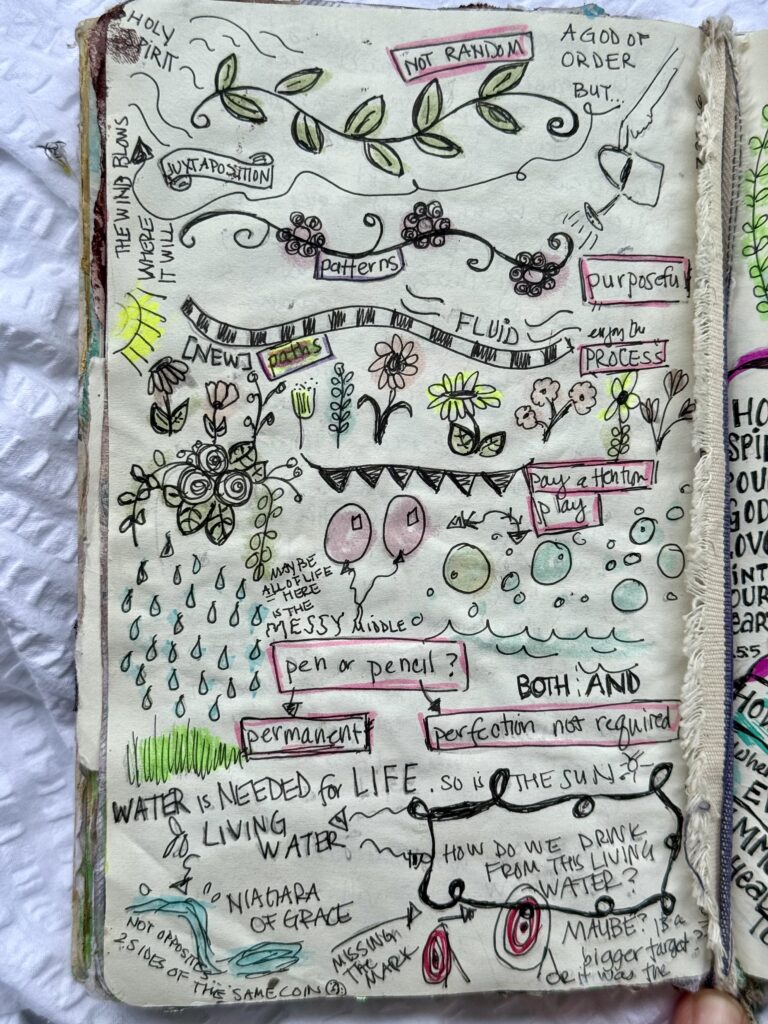 HOLY
SPIRIT
NOT RANDOM
A GOD OF
ORDER
BUT...
THE WIND BLOWS
WHERE
IT WILL
JUXTAPOSITION
patterns
purposeful
FLUID
[NEW] paths
enjoy the
PROCESS
pay attention
play
MAYBE
ALL OF LIFE
HERE
is THE
MESSY MIDDLE
pen or pencil?
BOTH; AND
permanent
perfection not required
WATER is NEEDED for LIFE. SO is THE SUN
LIVING
WATER
HOW DO WE DRINK
FROM THIS LIVING
WATER?
NIAGARA
OF GRACE
NOT OPPOSITES
2 SIDES OF THE SAME COIN
MISSING
THE
MARK
MAYBE? is a
bigger target?
or it was the
HO
SPIR
POU
GOD
LOVE
INT
OUR
EAR
5:5
HOW
EV